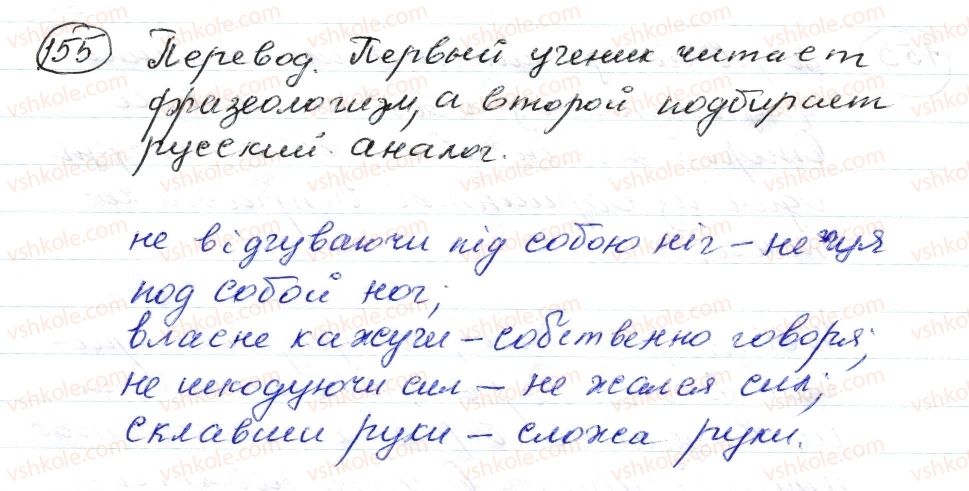 155 Перевод. Первый ученик читает
фразеологизм, а второй подбирает
русский аналог.
не відчуваючи під собою ніг – не чуя
под собой ног;
власне кажучи – собственно говоря;
не шкодуючи сил – не жалея сил;
склавши руки – сложа руки.